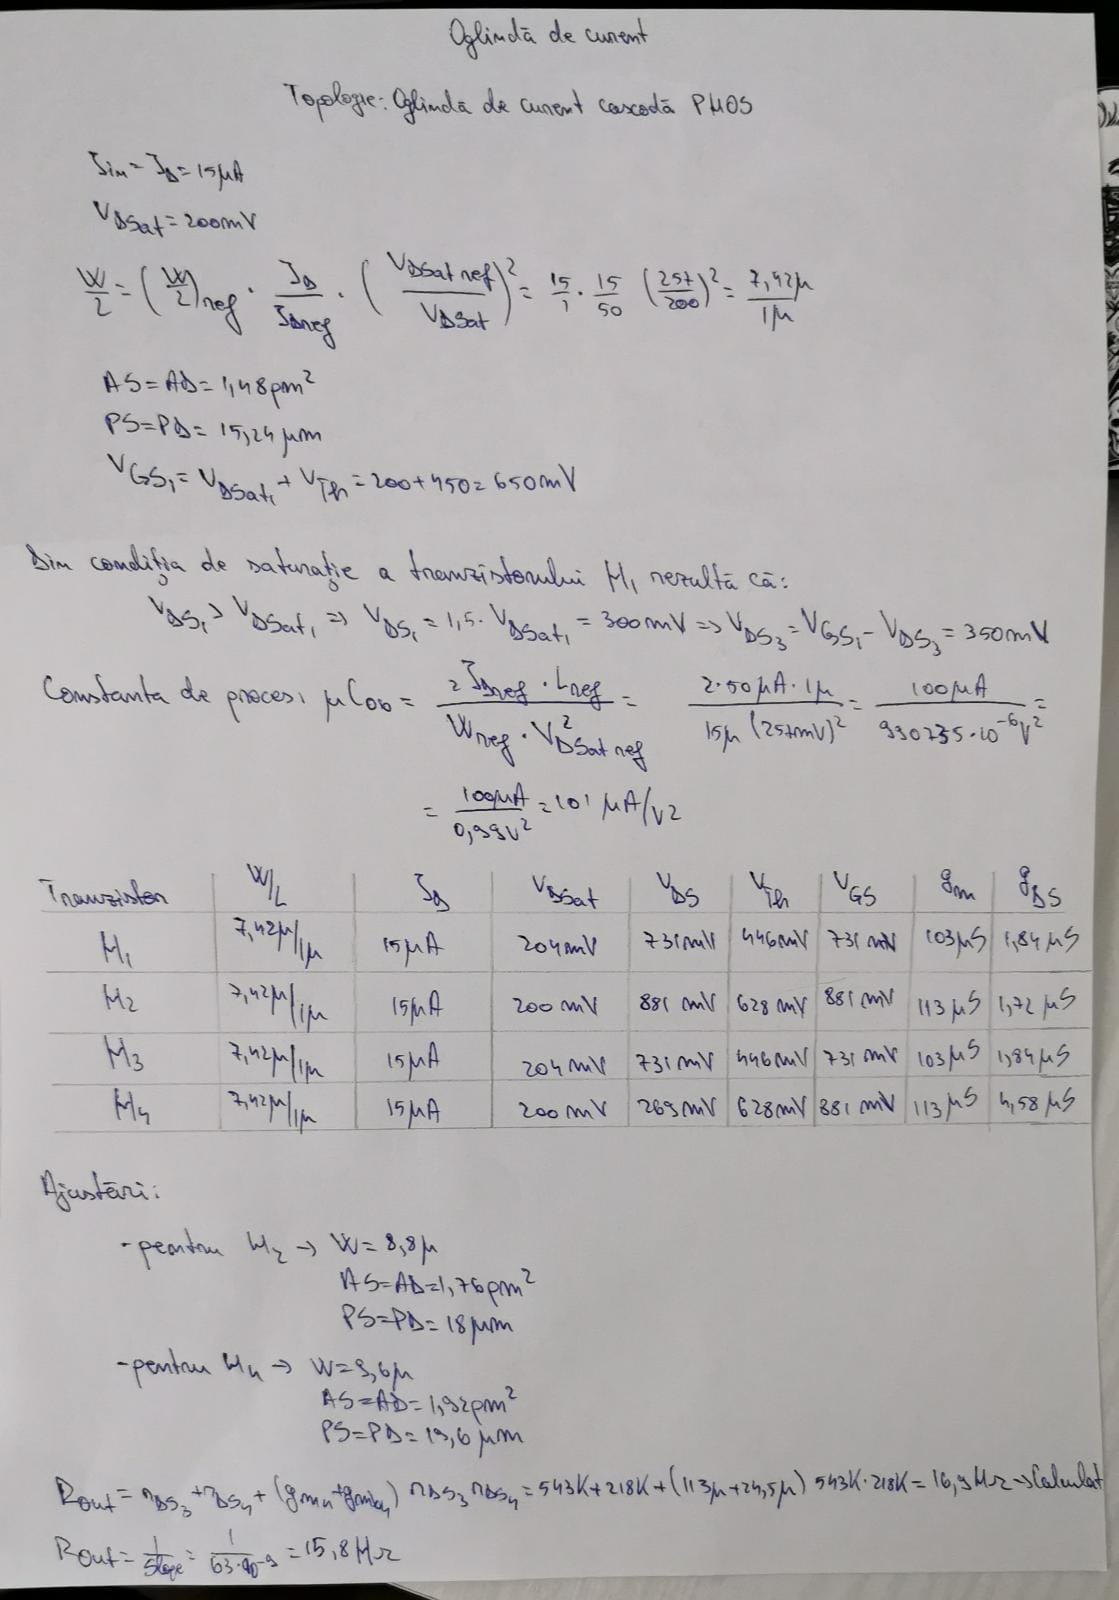 Oglindă de curent
Topologie: Oglindă de curent cascodă PMOS
Iin = ID = 15μA
VDSat = 200mV
W/2 = (W/2)ref · ID/IDref · (VDSat ref/VDSat)² = 15/1 · 15/50 (257/200)² = 7,42μ/1μ
AS=AD= 1,48pm²
PS=PD= 15,24 μm
VGS1 = VDSat1 + VTh = 200+450 = 650mV
Din condiția de saturație a tranzistorului M1 rezultă că:
VDS1 > VDSat1 ⇒ VDS1 = 1,5 · VDSat1 = 300mV ⇒ VDS3 = VGS1 - VDS3 = 350mV
Constanta de proces: μCox = 2 IDref · Lref / Wref · V²DSat ref = 2·50μA·1μ / 15μ (257mV)² = 100μA / 990735·10⁻⁶V² =
= 100μA / 0,99V² = 101 μA/V2
Tranzistor W/L ID VDSat VDS VTh VGS gm gDS
M1 7,42μ/1μ 15μA 204mV 731mV 446mV 731mV 103μS 1,84μS
M2 7,42μ/1μ 15μA 200mV 881mV 628mV 881mV 113μS 1,72μS
M3 7,42μ/1μ 15μA 204mV 731mV 446mV 731mV 103μS 1,84μS
M4 7,42μ/1μ 15μA 200mV 269mV 628mV 881mV 113μS 4,58μS
Ajustări:
- pentru M2 → W= 8,8μ
AS=AD=1,76pm²
PS=PD= 18μm
- pentru M4 → W=9,6μ
AS=AD=1,92pm²
PS=PD=19,6μm
Rout = rDS3 + rDS4 + (gm4+gmb4) rDS3 rDS4 = 543K+218K+(113μ+24,5μ) 543K·218K = 16,9MΩ → Calculat
Rout = 1/Slope = 1/63·10⁻⁹ = 15,8MΩ